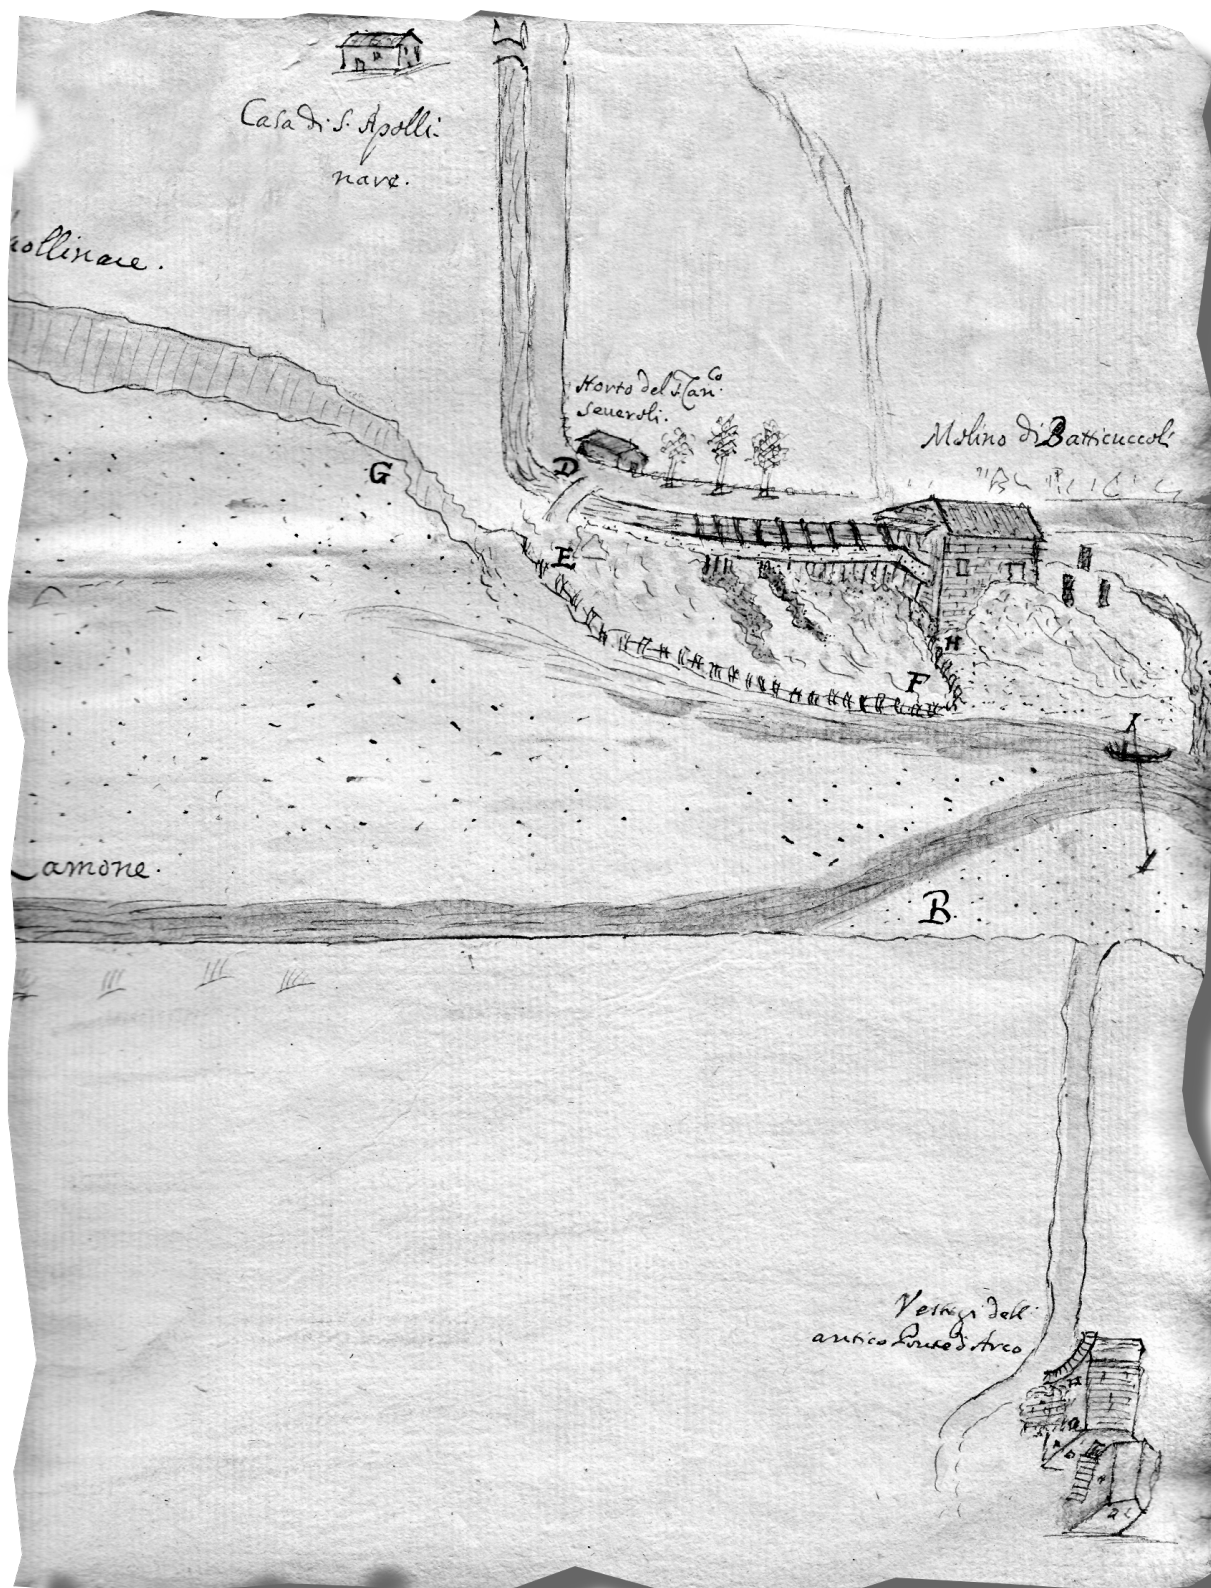 Casa di S. Apolli:
nare.
ollinare.
Horto del Can.co
Severoli.
Molino di Batticuccoli
G
D
E
H
F
I
Lamone.
B
Vestigi dell'
antico Ponte di Arco